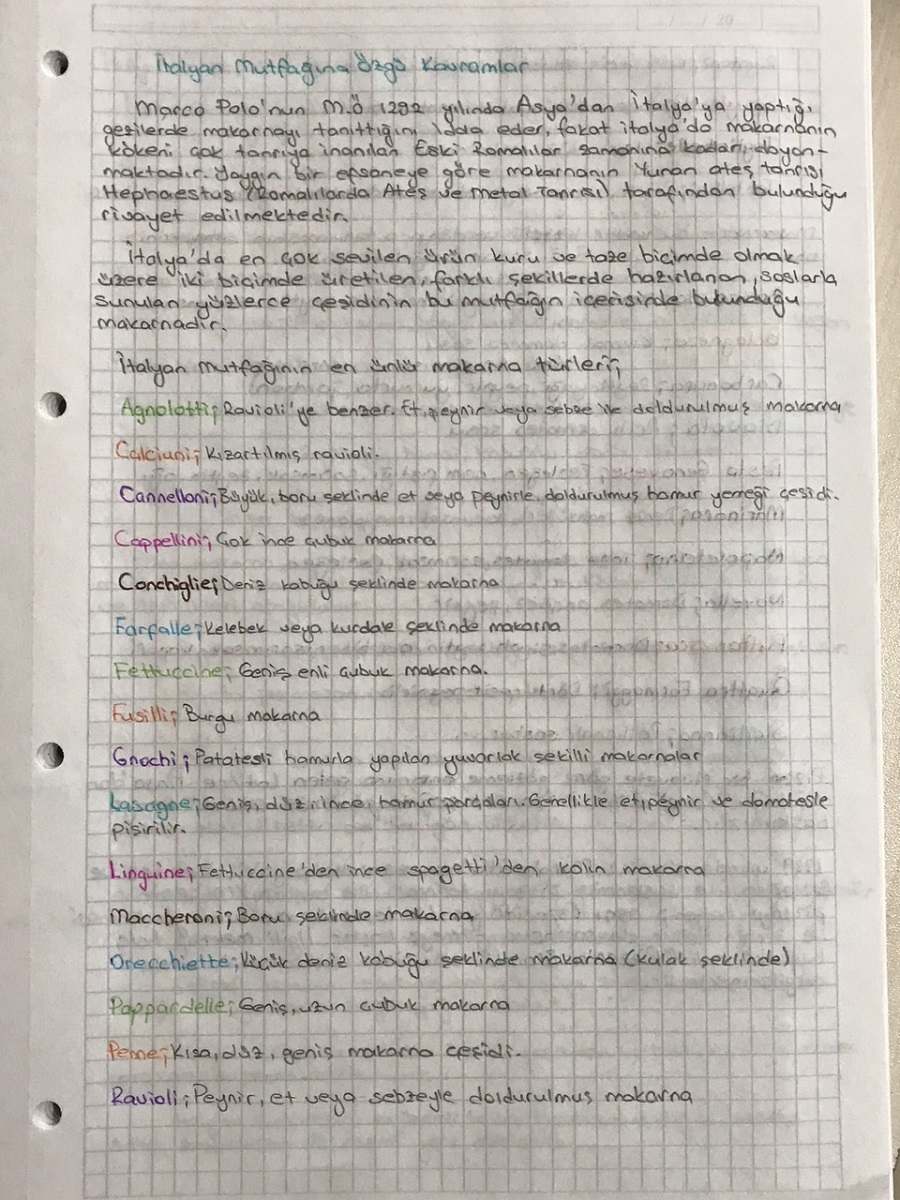 İtalyan Mutfağına Özgü Kavramlar
Marco Polo'nun M.Ö 1292 yılında Asya'dan İtalya'ya yaptığı
gezilerde makarnayı tanıttığını idda eder, fakat italya'da makarnanın
kökeni çok tanrıya inanılan Eski Romalılar zamanına kadar dayan-
maktadır. Yaygın bir efsaneye göre makarnanın Yunan ateş tanrısı
Hephaestus (Romalılarda Ateş ve metal Tanrısı) tarafından bulunduğu
rivayet edilmektedir.
İtalya'da en çok sevilen ürün kuru ve taze biçimde olmak
üzere iki biçimde üretilen, farklı şekillerde hazırlanan, soslarla
sunulan yüzlerce çeşidinin bu mutfağın içerisinde bulunduğu
makarnadır.
İtalyan Mutfağının en ünlü makarna türleri;
Agnolotti; Ravioli'ye benzer. Et, peynir veya sebze ile doldurulmuş makarna
Calciuni; Kızartılmış ravioli.
Cannelloni; Büyük, boru şeklinde et veya peynirle doldurulmuş hamur yemeği çeşidi.
Cappellini; Çok ince çubuk makarna
Conchiglie; Deniz kabuğu şeklinde makarna
Farfalle; Kelebek veya kurdale şeklinde makarna
Fettuccine; Geniş enli çubuk makarna.
Fusilli; Burgu makarna
Gnochi; Patatesli hamurla yapılan yuvarlak şekilli makarnalar
Lasagne; Geniş, düz, ince, hamur parçaları. Genellikle et, peynir ve domatesle
pişirilir.
Linguine; Fettuccine'den ince spagetti'den kalın makarna
Maccheroni; Boru şeklinde makarna
Orecchiette; Küçük deniz kabuğu şeklinde makarna (kulak şeklinde)
Pappardelle; Geniş, uzun çubuk makarna
Penne; Kısa, düz, geniş makarna çeşidi.
Ravioli; Peynir, et veya sebzeyle doldurulmuş makarna